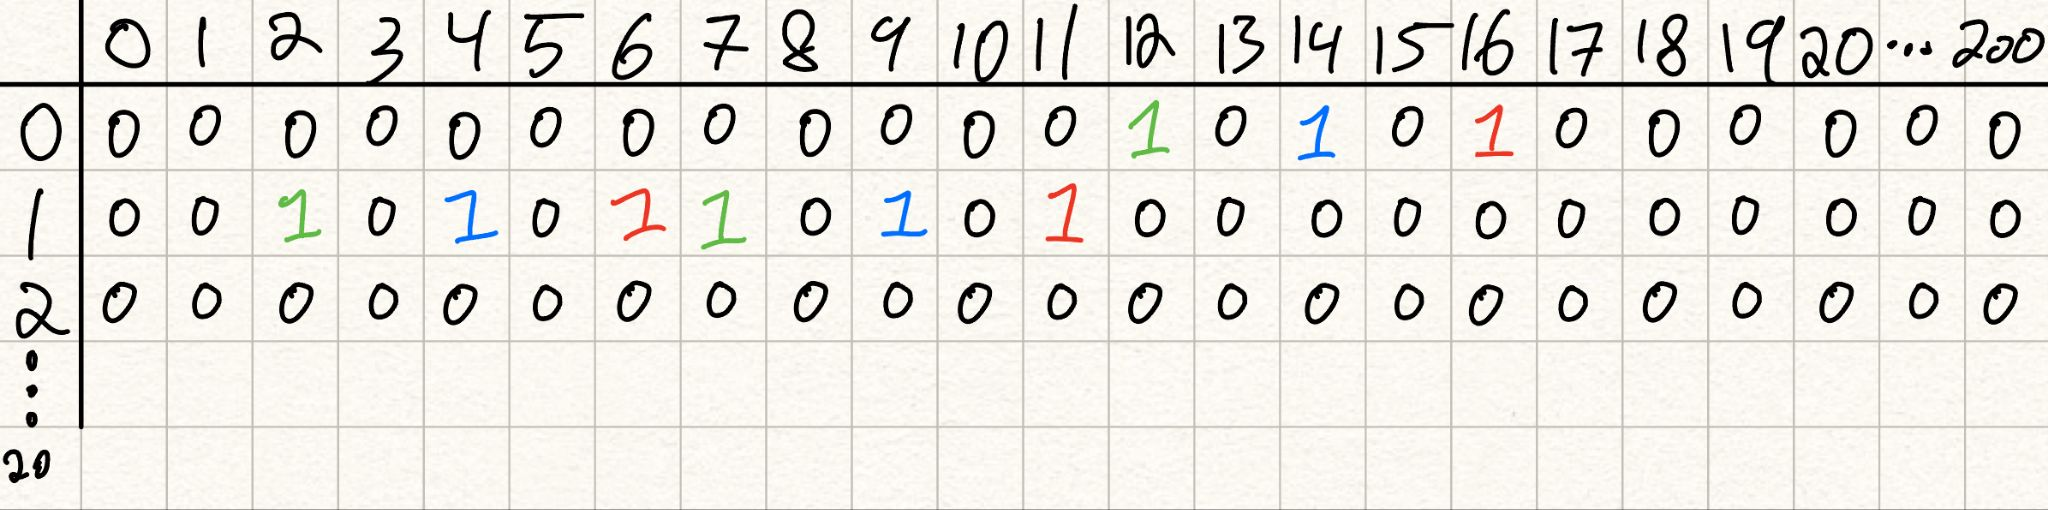 0 1 2 3 4 5 6 7 8 9 10 11 12 13 14 15 16 17 18 19 20 ... 200
0 0 0 0 0 0 0 0 0 0 0 0 0 1 0 1 0 1 0 0 0 0 0 0
1 0 0 1 0 1 0 1 1 0 1 0 1 0 0 0 0 0 0 0 0 0 0 0
2 0 0 0 0 0 0 0 0 0 0 0 0 0 0 0 0 0 0 0 0 0 0 0
⋮
20